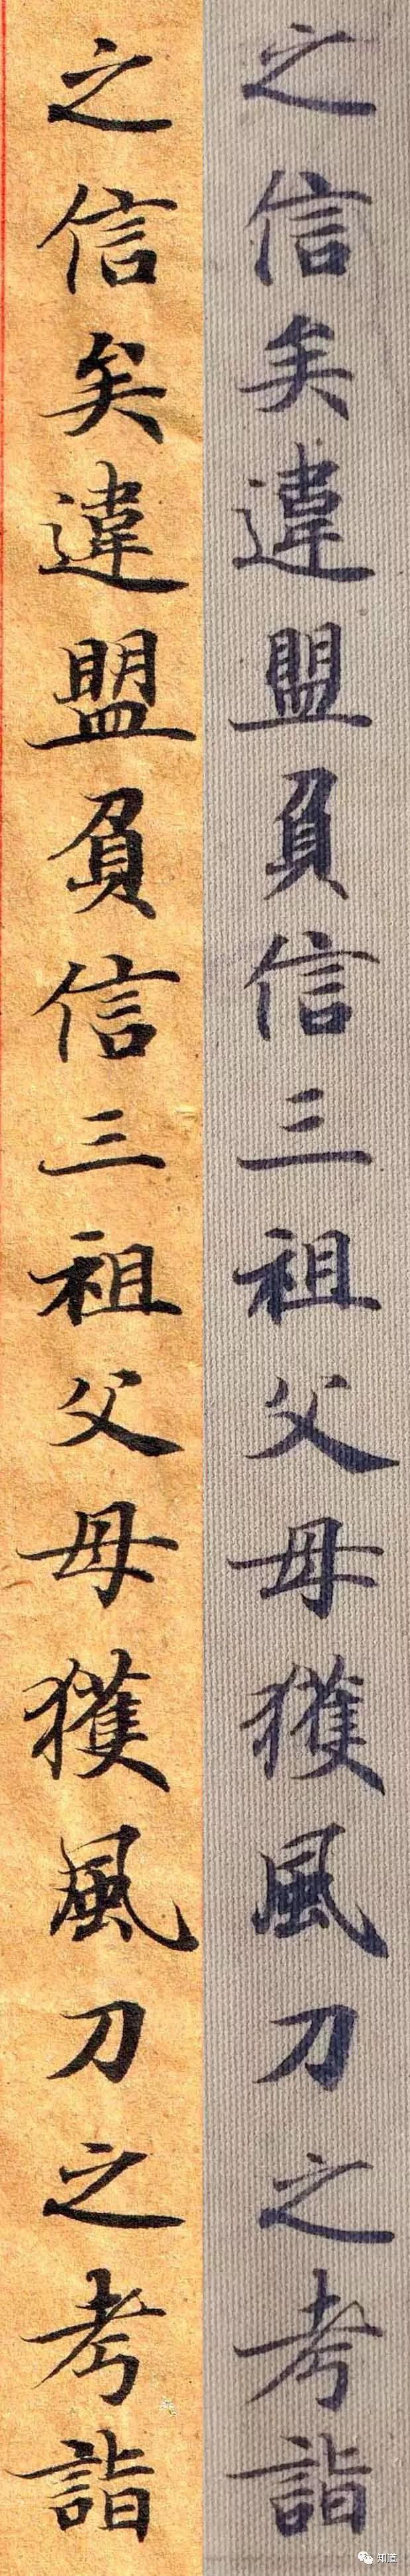 之信矣違盟負信三祖父母獲風刀之考詣
之信矣違盟負信三祖父母獲風刀之考詣
知道